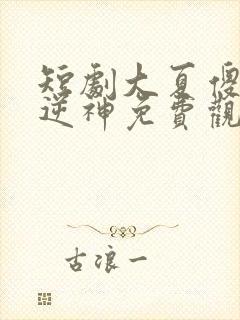 短劇大夏傻
逆神免費觀
古浪一